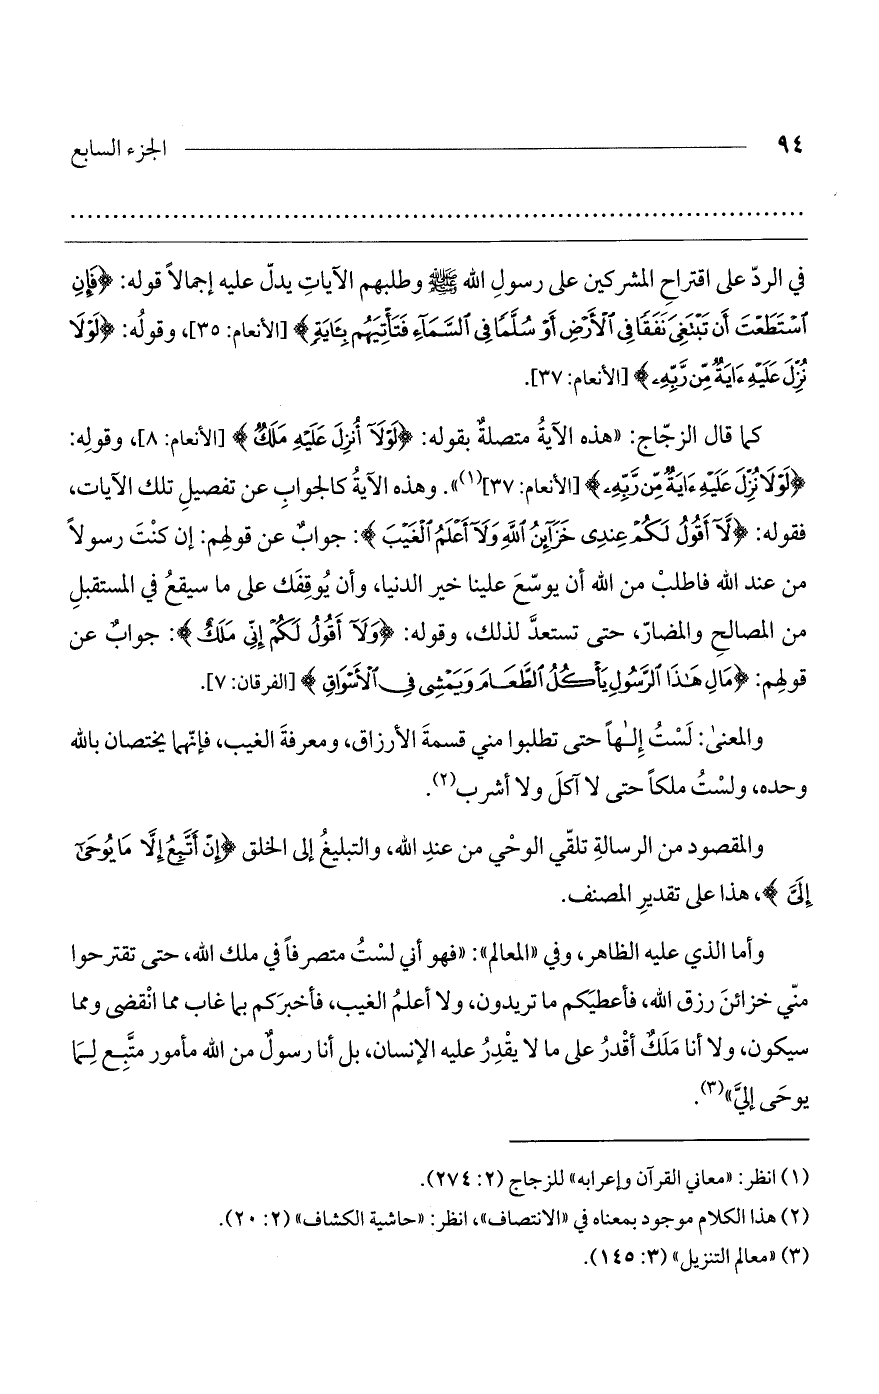 ٩٤ الجزء السابع
في الردّ على اقتراحِ المشركين على رسولِ الله ﷺ وطلبهم الآياتِ يدلّ عليه إجمالاً قوله: ﴿فَإِنِ
ٱسْتَطَعْتَ أَن تَبْتَغِىَ نَفَقًا فِى ٱلْأَرْضِ أَوْ سُلَّمًا فِى ٱلسَّمَآءِ فَتَأْتِيَهُم بِـَٔايَةٍ﴾ [الأنعام: ٣٥]، وقولُه: ﴿لَوْلَا
نُزِّلَ عَلَيْهِ ءَايَةٌ مِّن رَّبِّهِۦ﴾ [الأنعام: ٣٧].
كما قال الزجّاج: «هذه الآيةُ متصلةٌ بقوله: ﴿لَوْلَآ أُنزِلَ عَلَيْهِ مَلَكٌ﴾ [الأنعام: ٨]، وقولِه:
﴿لَوْلَا نُزِّلَ عَلَيْهِ ءَايَةٌ مِّن رَّبِّهِۦ﴾ [الأنعام: ٣٧](١)». وهذه الآيةُ كالجوابِ عن تفصيلِ تلك الآيات،
فقوله: ﴿لَّآ أَقُولُ لَكُمْ عِندِى خَزَآئِنُ ٱللَّهِ وَلَآ أَعْلَمُ ٱلْغَيْبَ﴾: جوابٌ عن قولهِم: إن كنْتَ رسولاً
من عند الله فاطلبْ من الله أن يوسّعَ علينا خير الدنيا، وأن يُوقِفَك على ما سيقعُ في المستقبلِ
من المصالحِ والمضارّ، حتى تستعدَّ لذلك، وقوله: ﴿وَلَآ أَقُولُ لَكُمْ إِنِّى مَلَكٌ﴾: جوابٌ عن
قولهِم: ﴿مَالِ هَٰذَا ٱلرَّسُولِ يَأْكُلُ ٱلطَّعَامَ وَيَمْشِى فِى ٱلْأَسْوَاقِ﴾ [الفرقان: ٧].
والمعنىٰ: لَسْتُ إلـٰهاً حتى تطلبوا مني قسمةَ الأرزاق، ومعرفةَ الغيب، فإنّهما يختصان بالله
وحده، ولسْتُ ملكاً حتى لا آكلَ ولا أشرب(٢).
والمقصود من الرسالةِ تلقّي الوحْي من عندِ الله، والتبليغُ إلى الخلق ﴿إِنْ أَتَّبِعُ إِلَّا مَا يُوحَىٰٓ
إِلَىَّ﴾، هذا على تقديرِ المصنف.
وأما الذي عليه الظاهر، وفي «المعالم»: «فهو أني لسْتُ متصرفاً في ملك الله، حتى تقترحوا
منّي خزائنَ رزق الله، فأعطيَكم ما تريدون، ولا أعلمُ الغيب، فأخبرَكم بما غاب مما انْقضى ومما
سيكون، ولا أنا مَلَكٌ أقْدرُ على ما لا يقْدِرُ عليه الإنسان، بل أنا رسولٌ من الله مأمور متَّبِع لِـمَا
يوحَى إليَّ»(٣).
(١) انظر: «معاني القرآن وإعرابه» للزجاج (٢: ٢٧٤).
(٢) هذا الكلام موجود بمعناه في «الانتصاف»، انظر: «حاشية الكشاف» (٢: ٢٠).
(٣) «معالم التنزيل» (٣: ١٤٥).